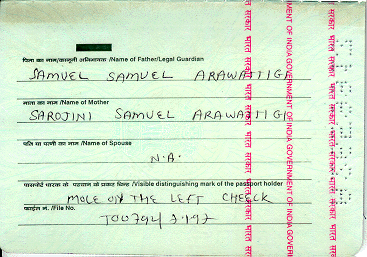 पिता का नाम/कानूनी अभिभावक /Name of Father/Legal Guardian
SAMUEL SAMUEL ARAWATTIGI
माता का नाम /Name of Mother
SAROJINI SAMUEL ARAWATTIGI
पति या पत्नी का नाम /Name of Spouse
N.A.
पासपोर्ट धारक के पहचान के प्रकट चिन्ह /Visible distinguishing mark of the passport holder
MOLE ON THE LEFT CHEELK
फाईल नं. /File No.
भारत सरकार भारत सरकार भारत सरकार
MENT OF INDIA GOVERNMENT OF INDIA GOVERNMENT OF INDIA GOVER
भारत सरकार भारत सरकार भारत सरकार